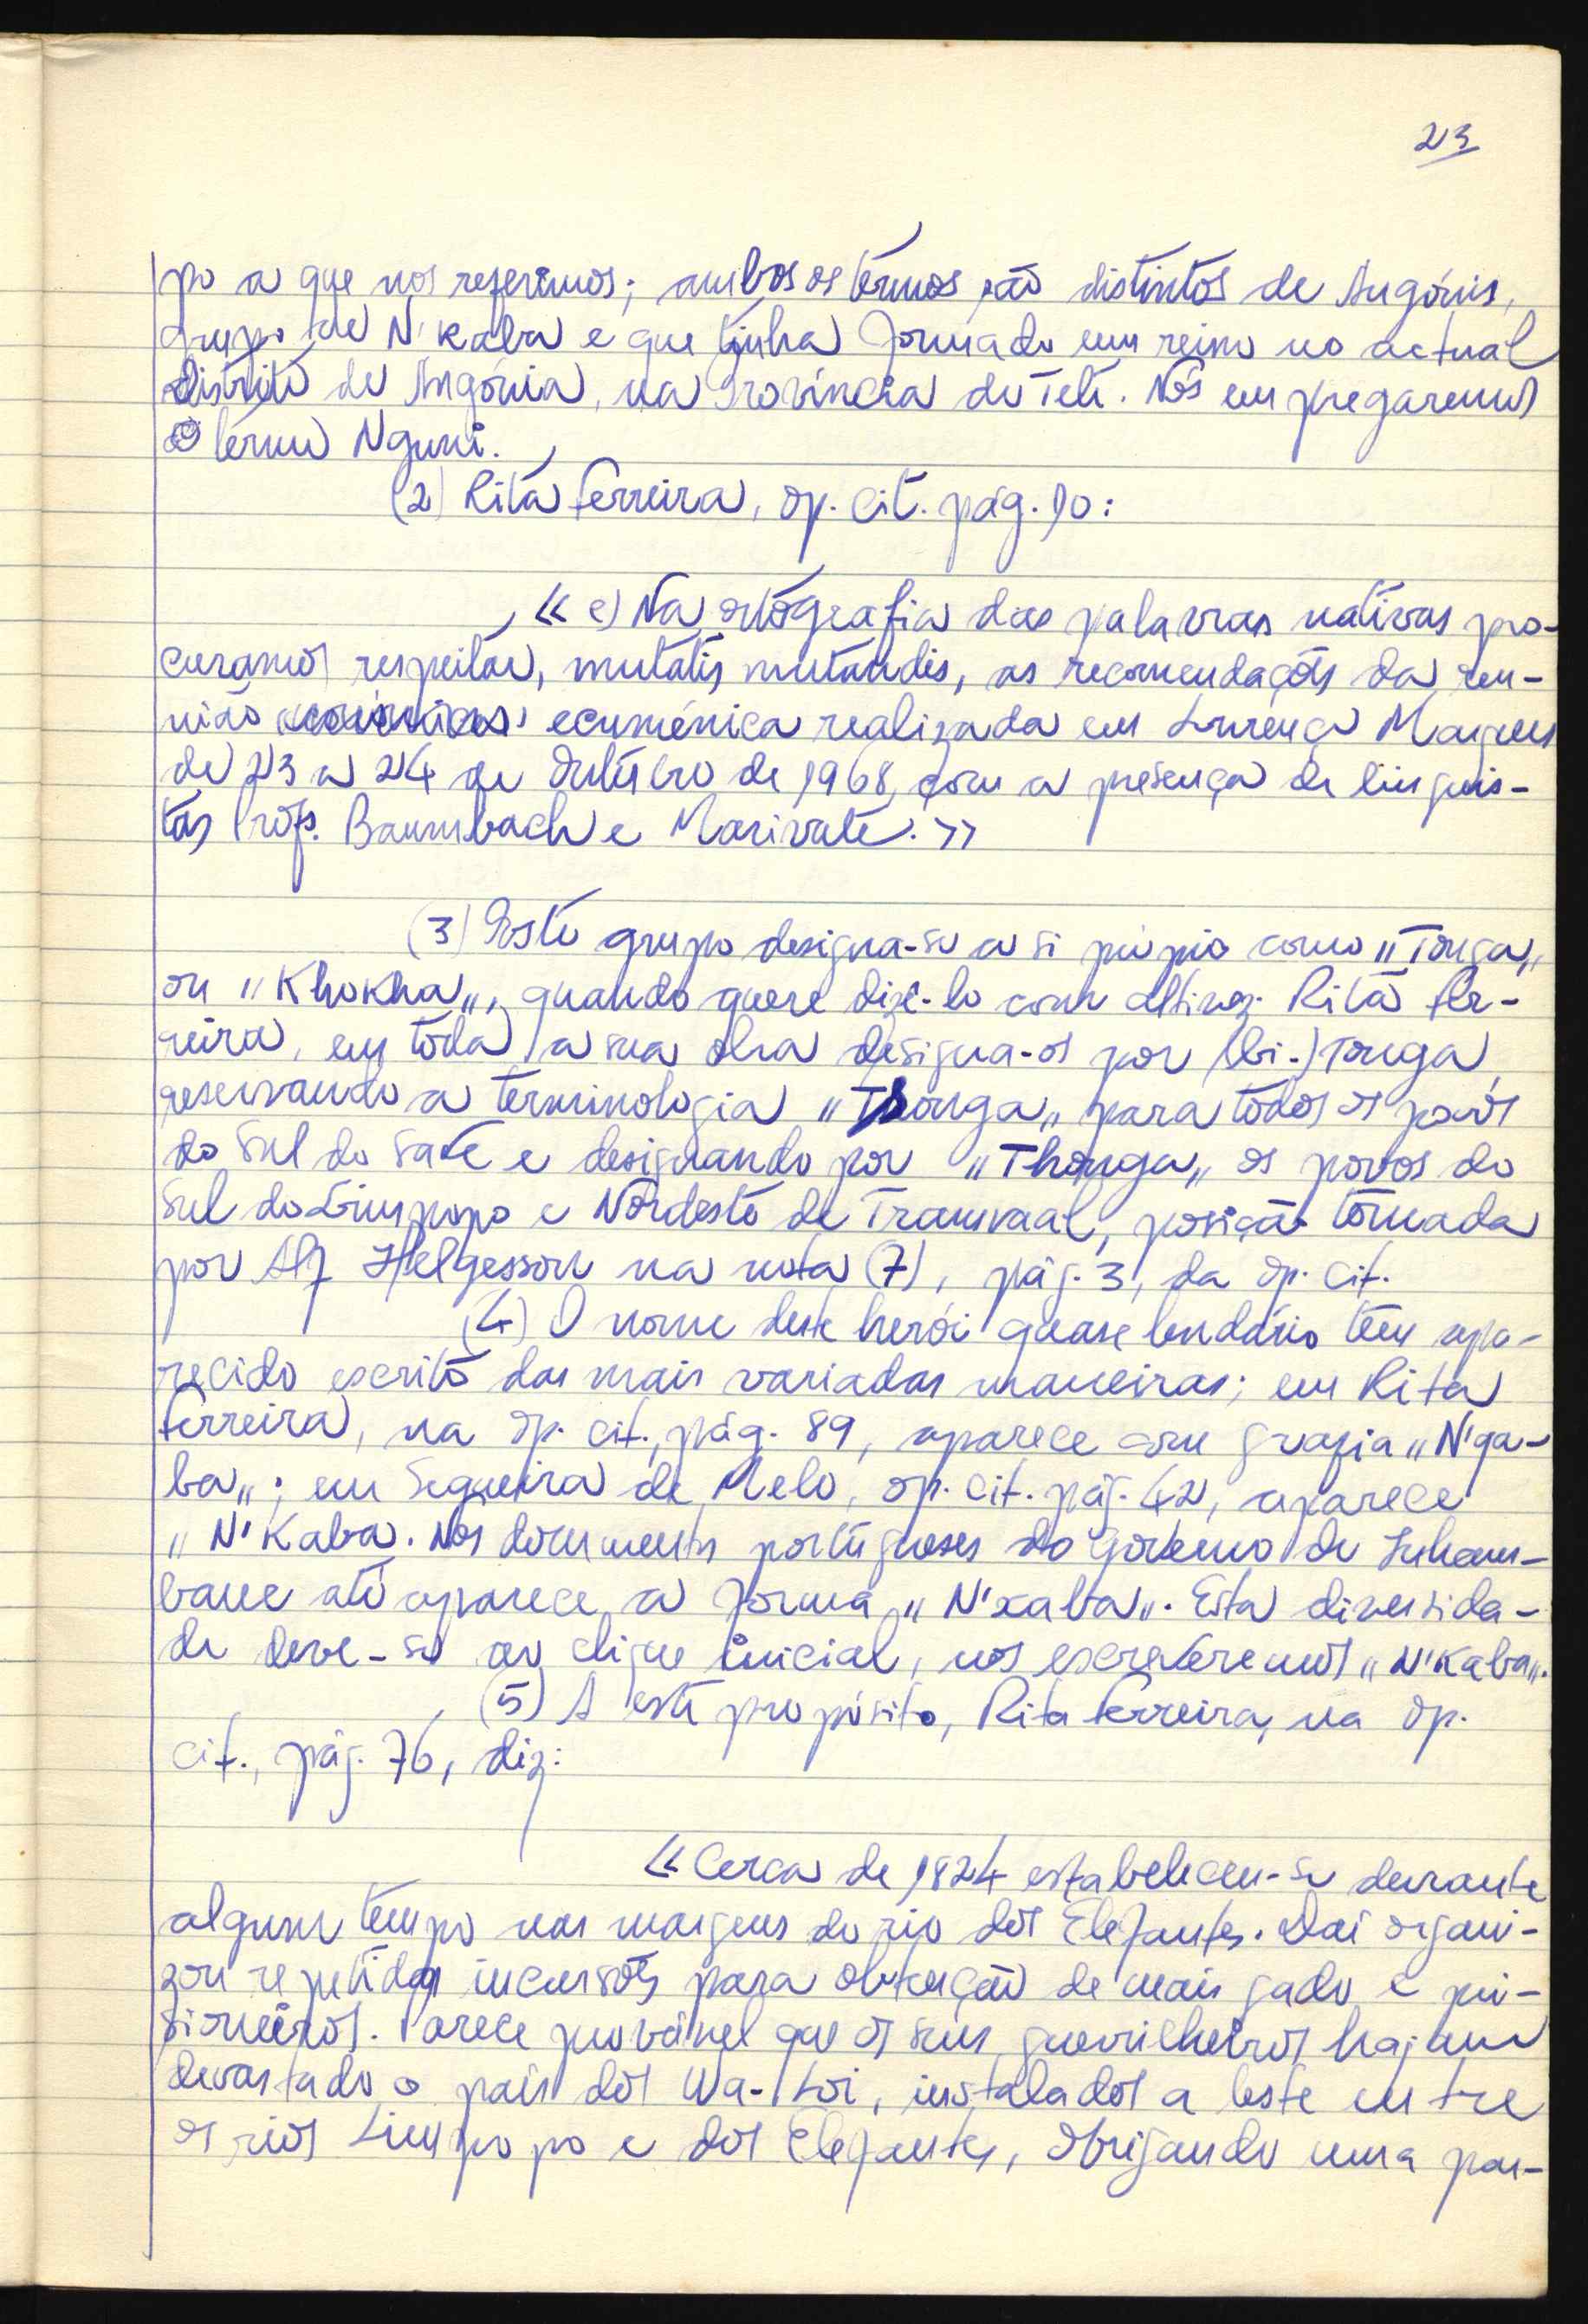 23
po a que nos referimos; ambos os têrmos são distintos de Angónis,
grupo de N'Kaba e que tinha formado um reino no actual
distrito de Angónia, na Província de Tete. Nós empregaremos
o têrmo Nguni.
(2) Rita Ferreira, op. cit. pág. 10:
« e) Na ortografia das palavras nativas pro-
curamos respeitar, mutatis mutandis, as recomendações da reu-
nião ecuménica realizada em Lourenço Marques
de 23 a 24 de Outubro de 1968, com a presença de linguis-
tas Profs. Baumbach e Marivate.»
(3) Este grupo designa-se a si próprio como "Tonga"
ou "Khokha", quando quere dizê-lo com altivez. Rita Fer-
reira, em tôda a sua obra designa-os por (bi-)Tonga,
reservando a terminologia "Tsonga" para todos os povos
do Sul do Save e designando por "Thonga" os povos do
Sul do Limpopo e Nordeste de Transvaal, posição tomada
por Alf Helgesson na nota (7), pág. 3, da op. cit.
(4) O nome deste herói quase lendário tem apa-
recido escrito das mais variadas maneiras; em Rita
Ferreira, na op. cit., pág. 89, aparece com grafia "N'ga-
ba"; em Sequeira de Melo, op. cit. pág. 42, aparece
"N'Kaba. Nos documentos portugueses do govêrno de Inham-
bane até aparece a forma "N'xaba". Esta diversida-
de deve-se ao clique inicial, nos escreveremos "N'Kaba".
(5) A este propósito, Rita Ferreira, na op.
cit., pág. 76, diz:
«Cerca de 1824 estabeleceu-se durante
algum tempo nas margens do rio dos Elefantes. Daí organi-
zou repetidas incursões para obtenção de mais gado e pri-
sioneiros. Parece provável que os seus guerrilheiros hajam
devastado o país dos Va-Loi, instalados a leste entre
os rios Limpopo e dos Elefantes, obrigando uma par-